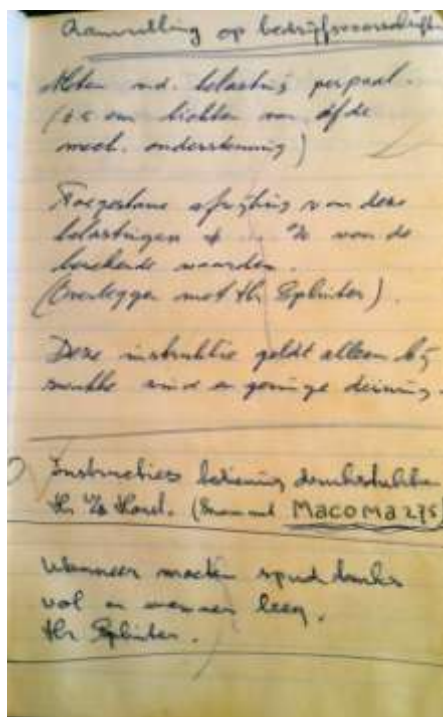 Aanvulling op bedrijfsvoorschriften
Meten v.d. belasting per paal.
(d.i. een lichten van áf de
mech. ondersteuning)
Toegestane afwijking van deze
belastingen ± % van de
berekende waarden.
(Overleggen met Hr Splinter).
Deze instruktie geldt alleen bij
zwakke wind en geringe deining.
Instructies bediening drukstukken
Hr v/d Horst. (Smeermid. MACOMA 275
Wanneer moeten spud tanks
vol en wanneer leeg.
Hr Splinter.